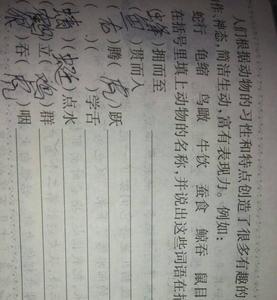 人们根据动物的习性和特点创造了很多有趣的
神态,简洁生动,富有表现力。例如:
蛇行 龟缩 鸟瞰 牛饮 蚕食 鲸吞 鼠目
在括号里填上动物的名称,并说出这些词语在
(蜂)拥而至
(鱼)贯而入
(龙)腾(虎)跃
( )( )学舌
(蜻)(蜓)点水
(鹤)立(鸡)群
(狼)吞(虎)咽